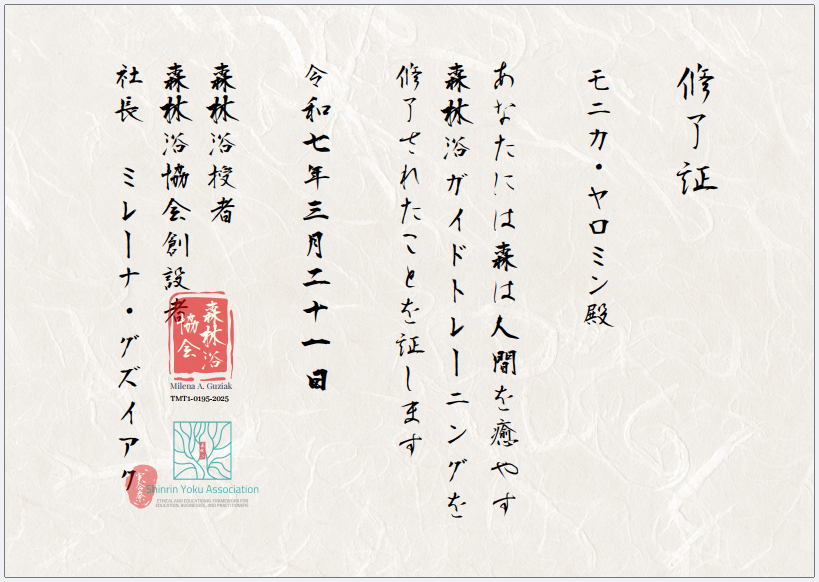 修了証
モニカ・ヤロミン殿
あなたには森は人間を癒やす
森林浴ガイドトレーニングを
修了されたことを証します
令和七年三月二十一日
森林浴授者
森林浴協会創設者
社長 ミレーナ・グズイアク
森林浴
協会
Milena A. Guziak
TMT1-0195-2025
Shinrin Yoku Association
ETHICAL AND EDUCATIONAL FRAMEWORK FOR
EDUCATION, BUSINESSES, AND PRACTITIONERS